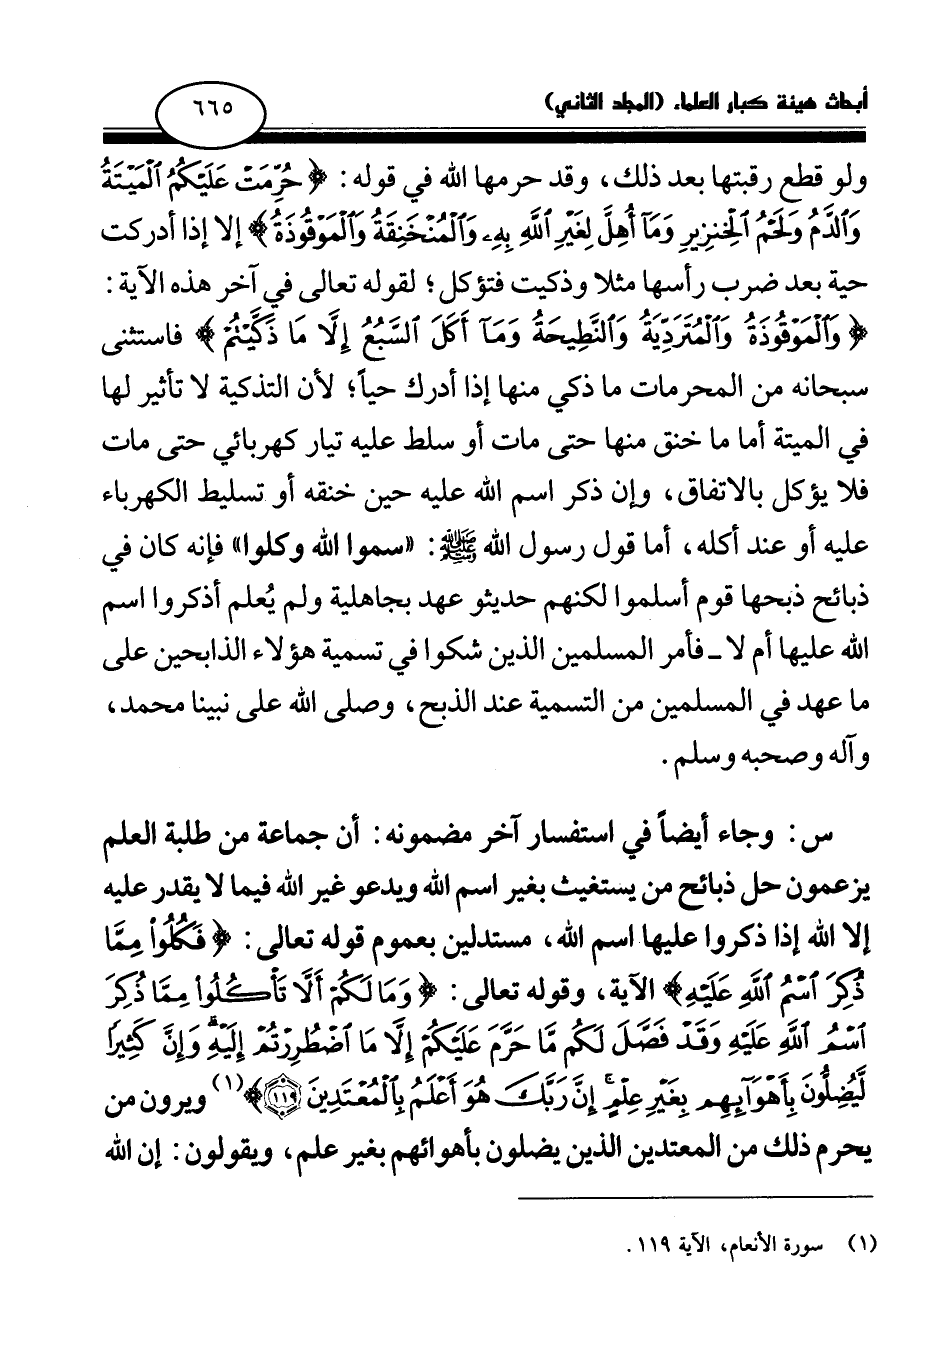 أبحاث هيئة كبار العلماء (المجلد الثاني)
٦٦٥
ولو قطع رقبتها بعد ذلك، وقد حرمها الله في قوله: ﴿حُرِّمَتْ عَلَيْكُمُ ٱلْمَيْتَةُ
وَٱلدَّمُ وَلَحْمُ ٱلْخِنزِيرِ وَمَآ أُهِلَّ لِغَيْرِ ٱللَّهِ بِهِۦ وَٱلْمُنْخَنِقَةُ وَٱلْمَوْقُوذَةُ﴾ إلا إذا أدركت
حية بعد ضرب رأسها مثلا وذكيت فتؤكل؛ لقوله تعالى في آخر هذه الآية:
﴿وَٱلْمَوْقُوذَةُ وَٱلْمُتَرَدِّيَةُ وَٱلنَّطِيحَةُ وَمَآ أَكَلَ ٱلسَّبُعُ إِلَّا مَا ذَكَّيْتُمْ﴾ فاستثنى
سبحانه من المحرمات ما ذكي منها إذا أدرك حياً؛ لأن التذكية لا تأثير لها
في الميتة أما ما خنق منها حتى مات أو سلط عليه تيار كهربائي حتى مات
فلا يؤكل بالاتفاق، وإن ذكر اسم الله عليه حين خنقه أو تسليط الكهرباء
عليه أو عند أكله، أما قول رسول الله ﷺ: «سموا الله وكلوا» فإنه كان في
ذبائح ذبحها قوم أسلموا لكنهم حديثو عهد بجاهلية ولم يُعلم أذكروا اسم
الله عليها أم لا ـ فأمر المسلمين الذين شكوا في تسمية هؤلاء الذابحين على
ما عهد في المسلمين من التسمية عند الذبح، وصلى الله على نبينا محمد،
وآله وصحبه وسلم.
س: وجاء أيضاً في استفسار آخر مضمونه: أن جماعة من طلبة العلم
يزعمون حل ذبائح من يستغيث بغير اسم الله ويدعو غير الله فيما لا يقدر عليه
إلا الله إذا ذكروا عليها اسم الله، مستدلين بعموم قوله تعالى: ﴿فَكُلُوا۟ مِمَّا
ذُكِرَ ٱسْمُ ٱللَّهِ عَلَيْهِ﴾ الآية، وقوله تعالى: ﴿وَمَا لَكُمْ أَلَّا تَأْكُلُوا۟ مِمَّا ذُكِرَ
ٱسْمُ ٱللَّهِ عَلَيْهِ وَقَدْ فَصَّلَ لَكُم مَّا حَرَّمَ عَلَيْكُمْ إِلَّا مَا ٱضْطُرِرْتُمْ إِلَيْهِ ۗ وَإِنَّ كَثِيرًا
لَّيُضِلُّونَ بِأَهْوَآئِهِم بِغَيْرِ عِلْمٍ ۚ إِنَّ رَبَّكَ هُوَ أَعْلَمُ بِٱلْمُعْتَدِينَ ١١٩﴾(١) ويرون من
يحرم ذلك من المعتدين الذين يضلون بأهوائهم بغير علم، ويقولون: إن الله
(١) سورة الأنعام، الآية ١١٩.